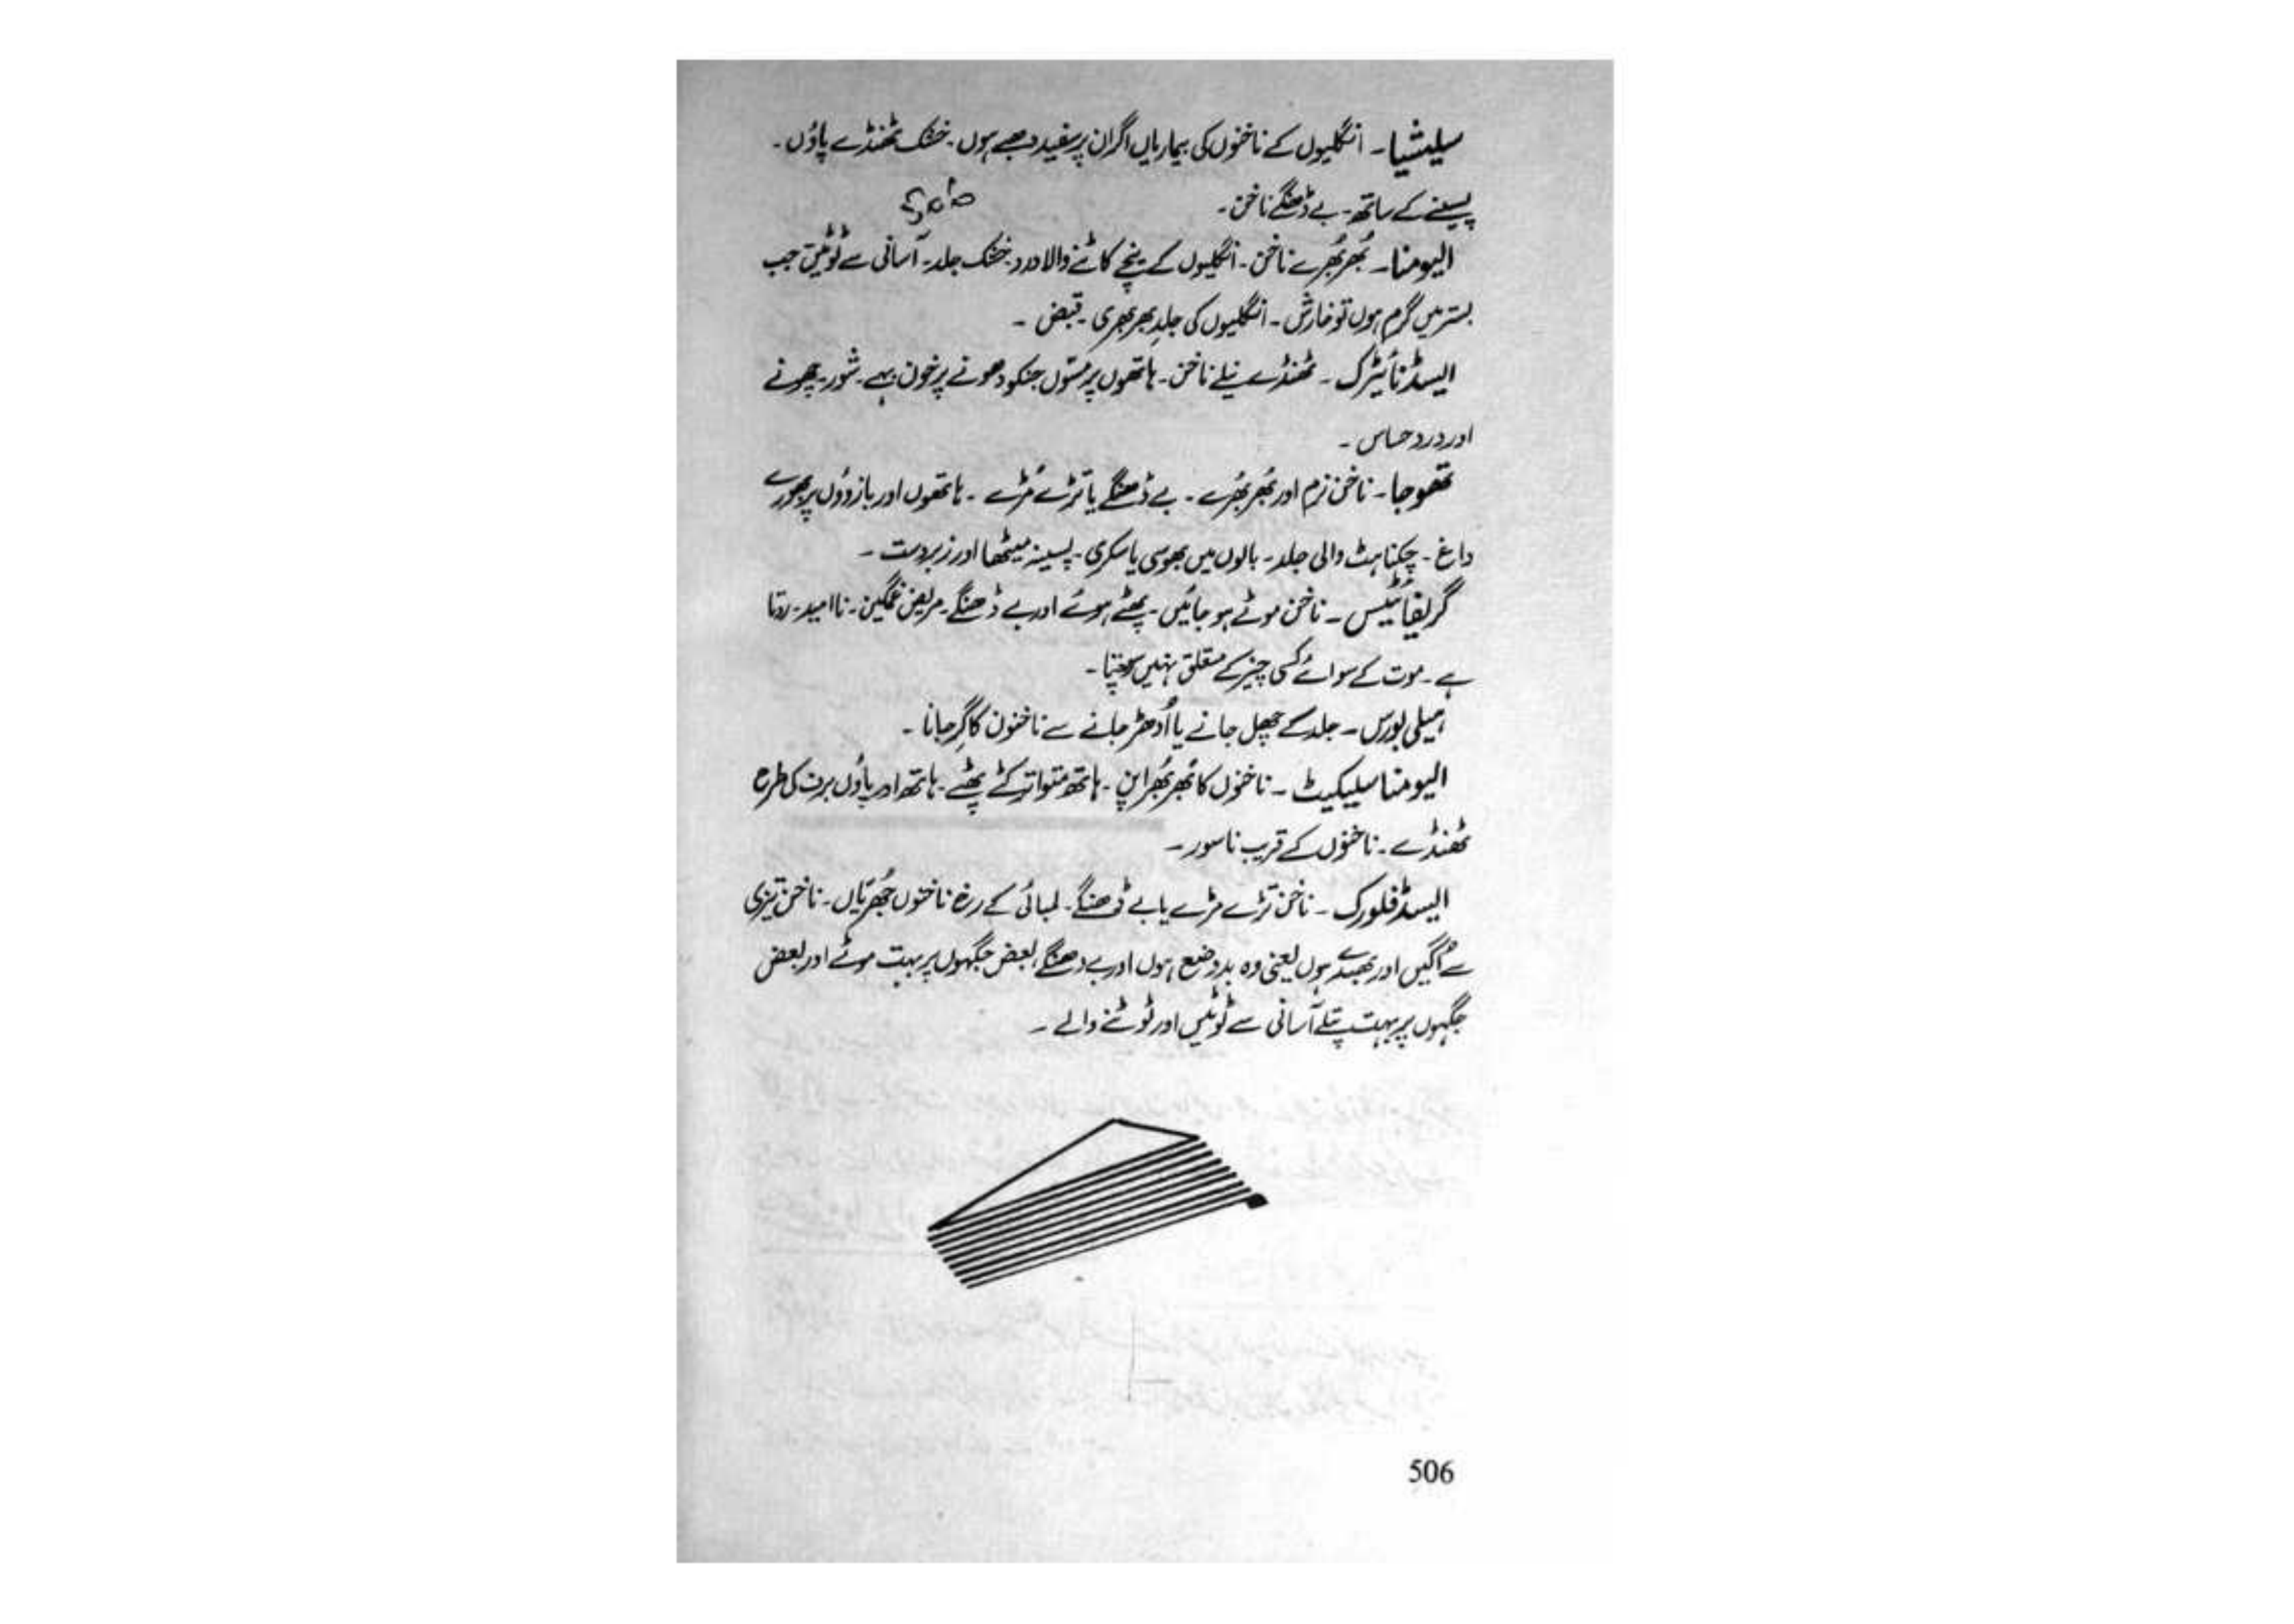 سلیشیا ۔ انگلیوں کے ناخنوں کی بیماریاں اگر ان پر سفید دھبے ہوں ۔ خشک ٹھنڈے پاؤں ۔
پسینے کے ساتھ ۔ بے ڈھنگے ناخن ۔
الیومنا ۔ بُھربُھرے ناخن ۔ انگلیوں کے نیچے کاٹنے والا درد ۔ خشک جلد ۔ آسانی سے ٹوٹیں جب
بستر میں گرم ہوں تو خارش ۔ انگلیوں کی جلد بھربھری ۔ قبض ۔
ایسڈ نائیٹرک ۔ ٹھنڈے نیلے ناخن ۔ ہاتھوں پر مسّوں جنکو دھونے پر خون بہے ۔ شور ۔ چھونے
اور درد حساس ۔
تھوجا ۔ ناخن نرم اور بُھربُھرے ۔ بے ڈھنگے یا تڑے مُڑے ۔ ہاتھوں اور بازوؤں پر بھورے
داغ ۔ چکناہٹ والی جلد ۔ بالوں میں بھوسی یا سکری ۔ پسینہ میٹھا اور زبردست ۔
گریفائیٹس ۔ ناخن موٹے ہو جائیں ۔ پھٹے ہوئے اور بے ڈھنگے ۔ مریض غمگین ۔ ناامید ۔ روتا
ہے ۔ موت کے سوائے کسی چیز کے متعلق نہیں سوچتا ۔
ہیلی بورس ۔ جلد کے چھل جانے یا اُدھڑ جانے سے ناخنون کا گِر جانا ۔
الیومنا سیلیکیٹ ۔ ناخنوں کا بُھربُھرا پن ۔ ہاتھ متواتر کٹے پھٹے ۔ ہاتھ اور پاؤں برف کی طرح
ٹھنڈے ۔ ناخنوں کے قریب ناسور ۔
ایسڈ فلورک ۔ ناخن تڑے مڑے یا بے ڈھنگے ۔ لمبائی کے رخ ناخنوں جُھرّیاں ۔ ناخن تیزی
سے اُگیں اور بھدے ہوں یعنی وہ بدوضع ہوں اور بے ڈھنگے بعض جگہوں پر بہت موٹے اور بعض
جگہوں پر بہت پتلے آسانی سے ٹوٹیں اور ٹوٹنے والے ۔
506